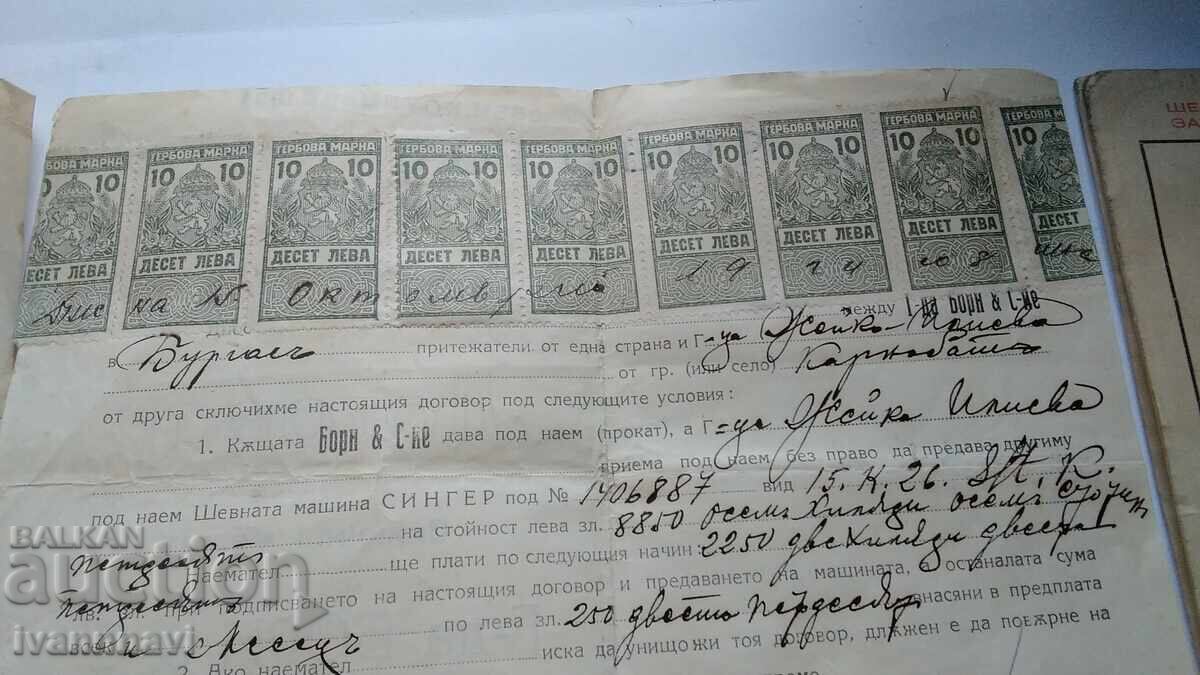 ГЕРБОВА МАРКА ГЕРБОВА МАРКА ГЕРБОВА МАРКА ГЕРБОВА МАРКА ГЕРБОВА МАРКА ГЕРБОВА МАРКА ГЕРБОВА МАРКА ГЕРБОВА МАРКА ГЕРБОВА
10 10 10 10 10 10 10 10 10 10 10 10 10 10 10 10 10
ДЕСЕТ ЛЕВА ДЕСЕТ ЛЕВА ДЕСЕТ ЛЕВА ДЕСЕТ ЛЕВА ДЕСЕТ ЛЕВА ДЕСЕТ ЛЕВА ДЕСЕТ ЛЕВА ДЕСЕТ ЛЕВА ДЕСЕТ ЛЕВА
Днес на 15 Октомврий 19
между Г-да Борн & С-ие
в Бургасъ притежатели от една страна и Г-ца Жейка Илиева
от гр. (или село) Карнобатъ
от друга сключихме настоящия договор под следующите условия:
1. Кѫщата Борн & С-ие дава под наем (прокат), а Г-ца Жейка Илиева
приема под наем без право да предава другиму
под наем Шевната машина СИНГЕР под № 1406887 вид 15. К. 26.
на стойност лева зл. 8850 осемь хиляди осемь стотин
петдесять
Наемател ще плати по следующия начин: 2250 две хиляди двеста
петдесять
лв. зл. при подписването на настоящия договор и предаването на машината, а останалата сума
по лева зл. 250 двести петдесять внасяни в предплата
всеки месецъ
2. Ако наемател иска да унищожи тоя договор, длъжен е да повърне на
BALKAN
auction
ivanmihavi
ШЕ
ЗА